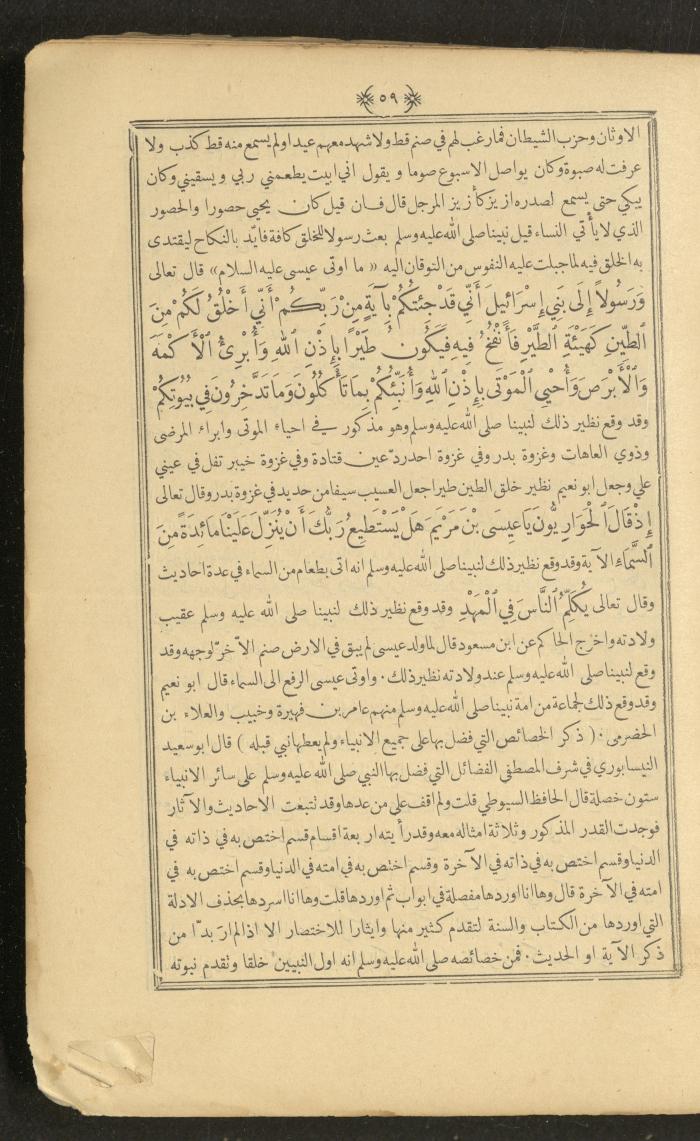 ٥٩
الاوثان وحزب الشيطان فمارغب لهم في صنم قط ولا شهد معهم عيدا ولم يسمع منه قط كذب ولا
عرفت له صبوة وكان يواصل الاسبوع صوما و يقول اني ابيت يطعمني ربي و يسقيني وكان
يبكي حتى يسمع لصدره ازيز كأزيز المرجل قال فان قيل كان يحيى حصورا والحصور
الذي لا يأتي النساء قيل نبينا صلى الله عليه وسلم بعث رسولا للخلق كافة فأيّد بالنكاح ليقتدى
به الخلق فيه لما جبلت عليه النفوس من التوقان اليه « ما اوتى عيسى عليه السلام » قال تعالى
وَرَسُولاً إِلَى بَنِي إِسْرَائِيلَ أَنِّي قَدْ جِئْتُكُمْ بِآيَةٍ مِنْ رَبِّكُمْ أَنِّي أَخْلُقُ لَكُمْ مِنَ
ٱلطِّينِ كَهَيْئَةِ ٱلطَّيْرِ فَأَنْفُخُ فِيهِ فَيَكُونُ طَيْرًا بِإِذْنِ ٱللهِ وَأُبْرِئُ ٱلْأَكْمَهَ
وَٱلْأَبْرَصَ وَأُحْيِي ٱلْمَوْتَى بِإِذْنِ ٱللهِ وَأُنَبِّئُكُمْ بِمَا تَأْكُلُونَ وَمَا تَدَّخِرُونَ فِي بُيُوتِكُمْ
وقد وقع نظير ذلك لنبينا صلى الله عليه وسلم وهو مذكور في احياء الموتى وابراء المرضى
وذوي العاهات وغزوة بدر وفي غزوة احد ردّ عين قتادة وفي غزوة خيبر تفل في عيني
علي وجعل ابو نعيم نظير خلق الطين طيرا جعل العسيب سيفا من حديد في غزوة بدر وقال تعالى
إِذْ قَالَ ٱلْحَوَارِيُّونَ يَا عِيسَى بْنَ مَرْيَمَ هَلْ يَسْتَطِيعُ رَبُّكَ أَنْ يُنَزِّلَ عَلَيْنَا مَائِدَةً مِنَ
ٱلسَّمَاءِ الآية وقد وقع نظير ذلك لنبينا صلى الله عليه وسلم انه اتى بطعام من السماء في عدة احاديث
وقال تعالى يُكَلِّمُ ٱلنَّاسَ فِي ٱلْمَهْدِ وقد وقع نظير ذلك لنبينا صلى الله عليه وسلم عقيب
ولادته واخرج الحاكم عن ابن مسعود قال لما ولد عيسى لم يبق في الارض صنم الا خرّ لوجهه وقد
وقع لنبينا صلى الله عليه وسلم عند ولادته نظير ذلك . واوتى عيسى الرفع الى السماء قال ابو نعيم
وقد وقع ذلك لجماعة من امة نبينا صلى الله عليه وسلم منهم عامر بن فهيرة وخبيب والعلاء بن
الحضرمى . ( ذكر الخصائص التي فضل بها على جميع الانبياء ولم يعطها نبي قبله ) قال ابو سعيد
النيسابوري في شرف المصطفى الفضائل التي فضل بها النبي صلى الله عليه وسلم على سائر الانبياء
ستون خصلة قال الحافظ السيوطي قلت ولم اقف على من عدها وقد تتبعت الاحاديث والآثار
فوجدت القدر المذكور وثلاثة امثاله معه وقد رأيته اربعة اقسام قسم اختص به في ذاته في
الدنيا وقسم اختص به في ذاته في الآخرة وقسم اختص به في امته في الدنيا وقسم اختص به في
امته في الآخرة قال وها انا اوردها مفصلة في ابواب ثم اوردها قلت وها انا اسردها بحذف الادلة
التي اوردها من الكتاب والسنة لتقدم كثير منها وايثارا للاختصار الا اذا لم ار بدّا من
ذكر الآية او الحديث . فمن خصائصه صلى الله عليه وسلم انه اول النبيين خلقا وتقدم نبوته